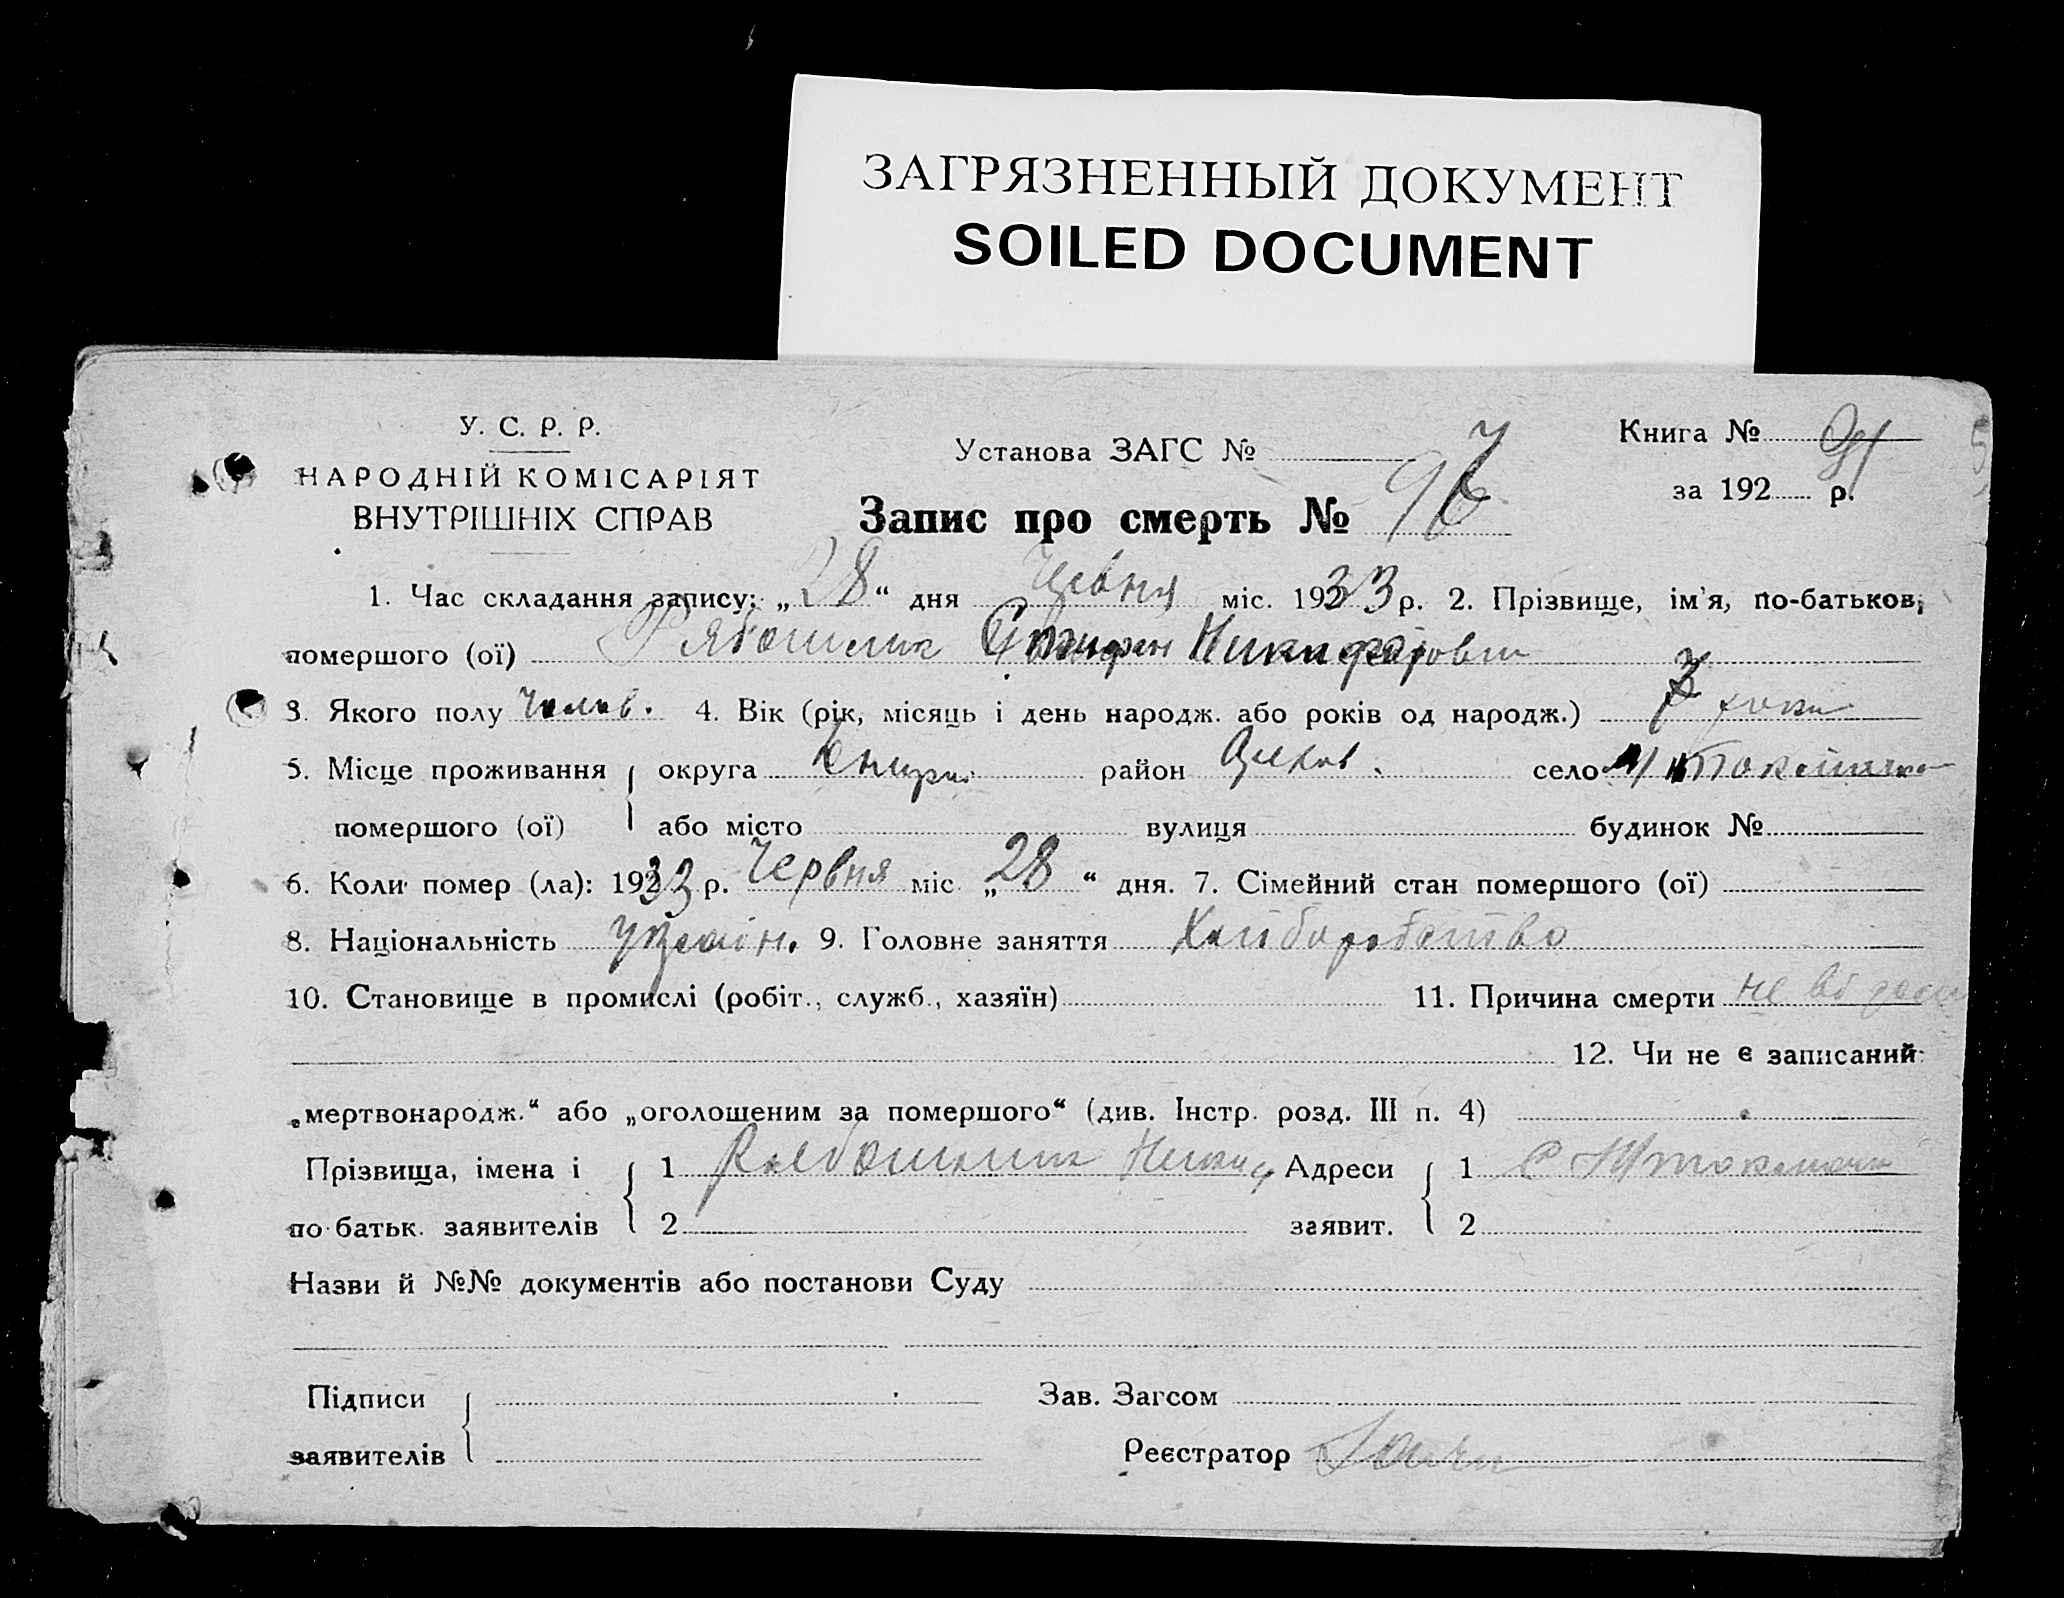 ЗАГРЯЗНЕННЫЙ ДОКУМЕНТ
SOILED DOCUMENT
У. С. Р. Р.
НАРОДНІЙ КОМІСАРІЯТ
ВНУТРІШНІХ СПРАВ
Установа ЗАГС №
Книга №
за 192 р.
Запис про смерть № 97
1. Час складання запису: „28“ дня Червня міс. 1933 р. 2. Прізвище, ім'я, по-батьков,
помершого (ої) Никифорович
3. Якого полу чолов. 4. Вік (рік, місяць і день народж. або років од народж.) 3 роки
5. Місце проживання округа район село
помершого (ої) або місто вулиця будинок №
6. Коли помер (ла): 1933 р. Червня міс. „28“ дня. 7. Сімейний стан помершого (ої)
8. Національність Україн. 9. Головне заняття Хліборобство
10. Становище в промислі (робіт., служб., хазяїн) 11. Причина смерти не
12. Чи не є записаний
„мертвонародж.“ або „оголошеним за помершого“ (див. Інстр. розд. III п. 4)
Прізвища, імена і 1 Адреси 1 с
по батьк. заявителів 2 заявит. 2
Назви й №№ документів або постанови Суду
Підписи Зав. Загсом
заявителів Реєстратор